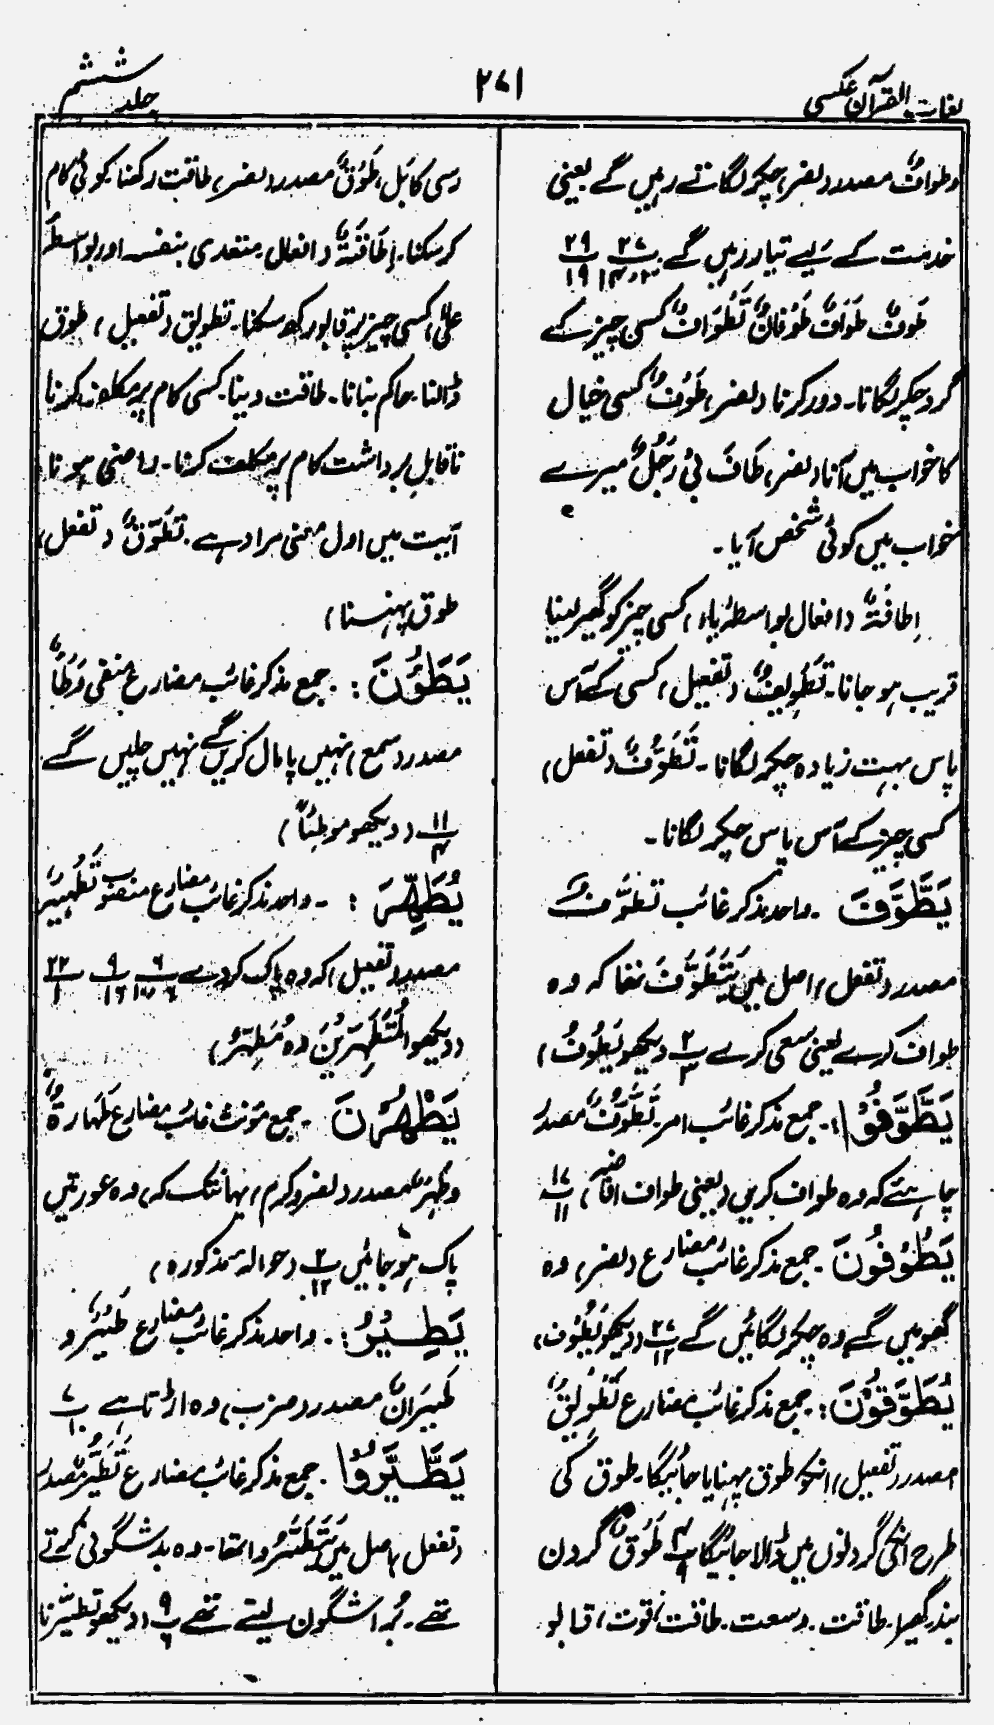 لغات القرآن عکسی
۲۷۱
جلد ششم
و طوافٌ مصدر (نصر) چکر لگاتے رہیں گے یعنی
خدمت کے لیے تیار رہیں گے۔
طَوفٌ طَوَافٌ طَوَفَانٌ تَطْوَافٌ کسی چیز کے
گرد چکر لگانا۔ دور کرنا (نصر) طَوْفٌ کسی خیال
کا خواب میں آنا (نصر) طَافَ بِیْ رَجُلٌ میرے
خواب میں کوئی شخص آیا۔
اِطَافَۃٌ (افعال بواسطہ باء) کسی چیز کو گھیر لینا
قریب ہو جانا۔ تَطْوِیفٌ (تفعیل) کسی کے آس
پاس بہت زیادہ چکر لگانا۔ تَطَوُّفٌ (تفعل)
کسی چیز کے آس پاس چکر لگانا۔
یَطَّوَّفَ ۔ واحد مذکر غائب تطوُّفٌ
مصدر (تفعل) اصل میں یَتَطَوَّفَ تھا کہ وہ
طواف کرے یعنی سعی کرے پ ۲/۳ (دیکھو یَطُوْفُ)
یَطَّوَّفُوْا: ۔ جمع مذکر غائب امر تَطَوُّفٌ مصدر
چاہئے کہ وہ طواف کریں (یعنی طواف افاضہ) پ ۱۷/۱۱
یَطُوْفُوْنَ ۔ جمع مذکر غائب مضارع (نصر) وہ
گھومیں گے وہ چکر لگائیں گے پ ۲۷/۱۲ (دیکھو یَطُوْفُ)
یُطَوَّقُوْنَ: ۔ جمع مذکر غائب مضارع تَطْوِیْقٌ
مصدر (تفعیل) انکو طوق پہنایا جائیگا۔ طوق کی
طرح انکی گردنوں میں ڈالا جائیگا پ ۴/۹ طَوْقٌ گردن
بند گھیرا۔ طاقت۔ وسعت۔ طاقت، قوت، قابو
رسی کا بَل، طَوْقٌ مصدر (نصر) طاقت رکھنا کوئی کام
کر سکنا۔ اِطَاقَۃٌ (افعال) متعدی بنفسہ اور بواسطہ
علیٰ، کسی چیز پر قابو رکھ سکنا۔ تطویق (تفعیل) طوق
ڈالنا۔ حاکم بنانا۔ طاقت دینا۔ کسی کام پر مکلف کرنا
ناقابلِ برداشت کام پر مکلف کرنا۔ راضی ہونا
آیت میں اول معنی مراد ہے۔ تَطَوُّقٌ (تفعل)
طوق پہننا)
یَطَؤُنَ: ۔ جمع مذکر غائب مضارع منفی وَطَأٌ
مصدر (سمع) نہیں پامال کریں گے نہیں چلیں گے
پ ۱۱/۴ (دیکھو موطِئًا)
یُطَھِّرَ: ۔ واحد مذکر غائب مضارع منصوب تَطْہِیرٌ
مصدر (تفعیل) کہ وہ پاک کر دے
(دیکھو اَلْمُتَطَہِّرِیْنَ وہ مُطَہِّرُ)
یَطْھُرْنَ ۔ جمع مؤنث غائب مضارع طَہَارَۃٌ
و طُہْرٌ مصدر (نصر و کرم) یہانتک کہ وہ عورتیں
پاک ہو جائیں پ ۲/۱۲ (حوالہ مذکورہ)
یَطِیْرُ: ۔ واحد مذکر غائب مضارع طَیْرٌ و
طَیَرَانٌ مصدر (ضرب) وہ اڑتا ہے پ ۷/۱۰
یَطَّیَّرُوْا ۔ جمع مذکر غائب مضارع تَطَیُّرٌ مصدر
(تفعل) اصل میں یَتَطَیَّرُوا تھا۔ وہ بدشگونی کرتے
تھے۔ بُرا شگون لیتے تھے پ ۹/۶ (دیکھو تطیَّرنا